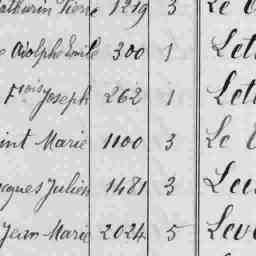 athurin Pierre 1219 3 Le
Adolphe Emile 300 1 Let
Fçois Joseph 262 1 Let
int Marie 1100 3 Le
cques Julien 1481 3 Lev
Jean Marie 2024 5 Lev